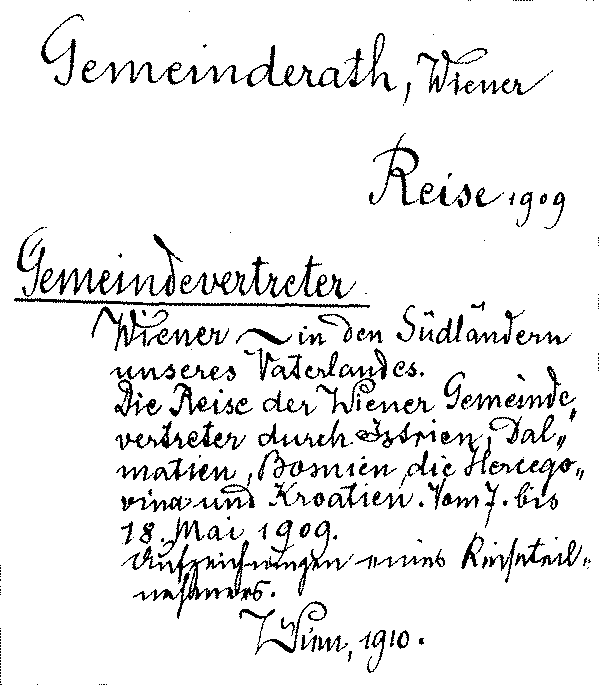 Gemeinderath, Wiener
Reise 1909
Gemeindevertreter
Wiener ~ in den Südländern
unseres Vaterlandes.
Die Reise der Wiener Gemeinde„
vertreter durch Istrien, Dal„
matien, Bosnien, die Hercego„
vina und Kroatien. Vom 7. bis
18. Mai 1909.
Aufzeichnungen eines Reiseteil„
nehmers.
Wien, 1910.